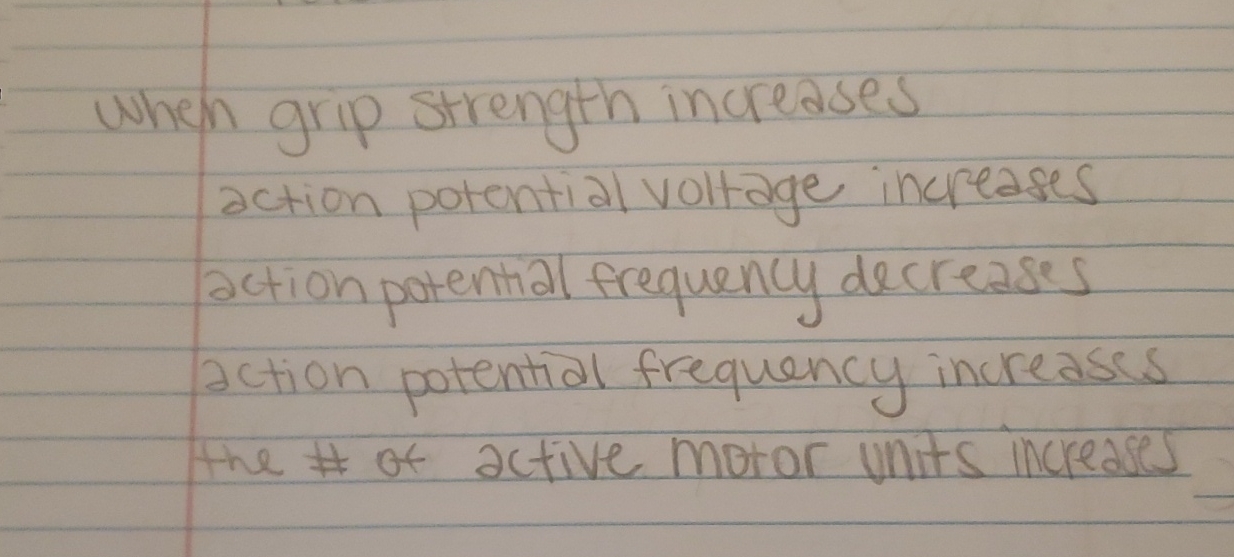 when grip strength increases
action potential voltage increases
action potential frequency decreases
action potential frequency increases
the # of active motor units increases